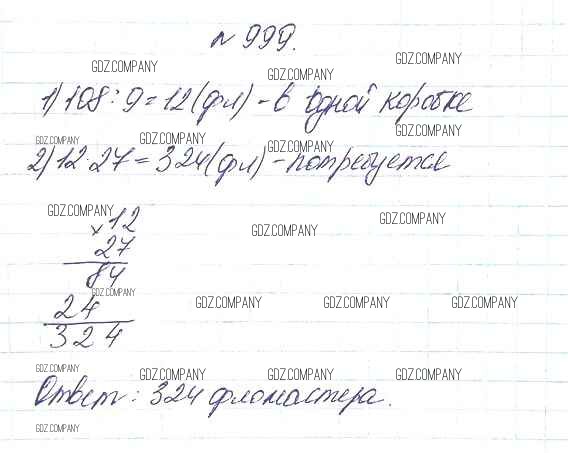 № 999.
GDZ.COMPANY GDZ.COMPANY GDZ.COMPANY
1) 108 : 9 = 12 (фл) - в одной коробке
GDZ.COMPANY GDZ.COMPANY GDZ.COMPANY GDZ.COMPANY
2) 12 · 27 = 324 (фл) - потребуется
GDZ.COMPANY GDZ.COMPANY GDZ.COMPANY
× 12
27
84
GDZ.COMPANY
24
GDZ.COMPANY GDZ.COMPANY GDZ.COMPANY
324
GDZ.COMPANY GDZ.COMPANY GDZ.COMPANY GDZ.COMPANY
Ответ: 324 фломастера.
GDZ.COMPANY